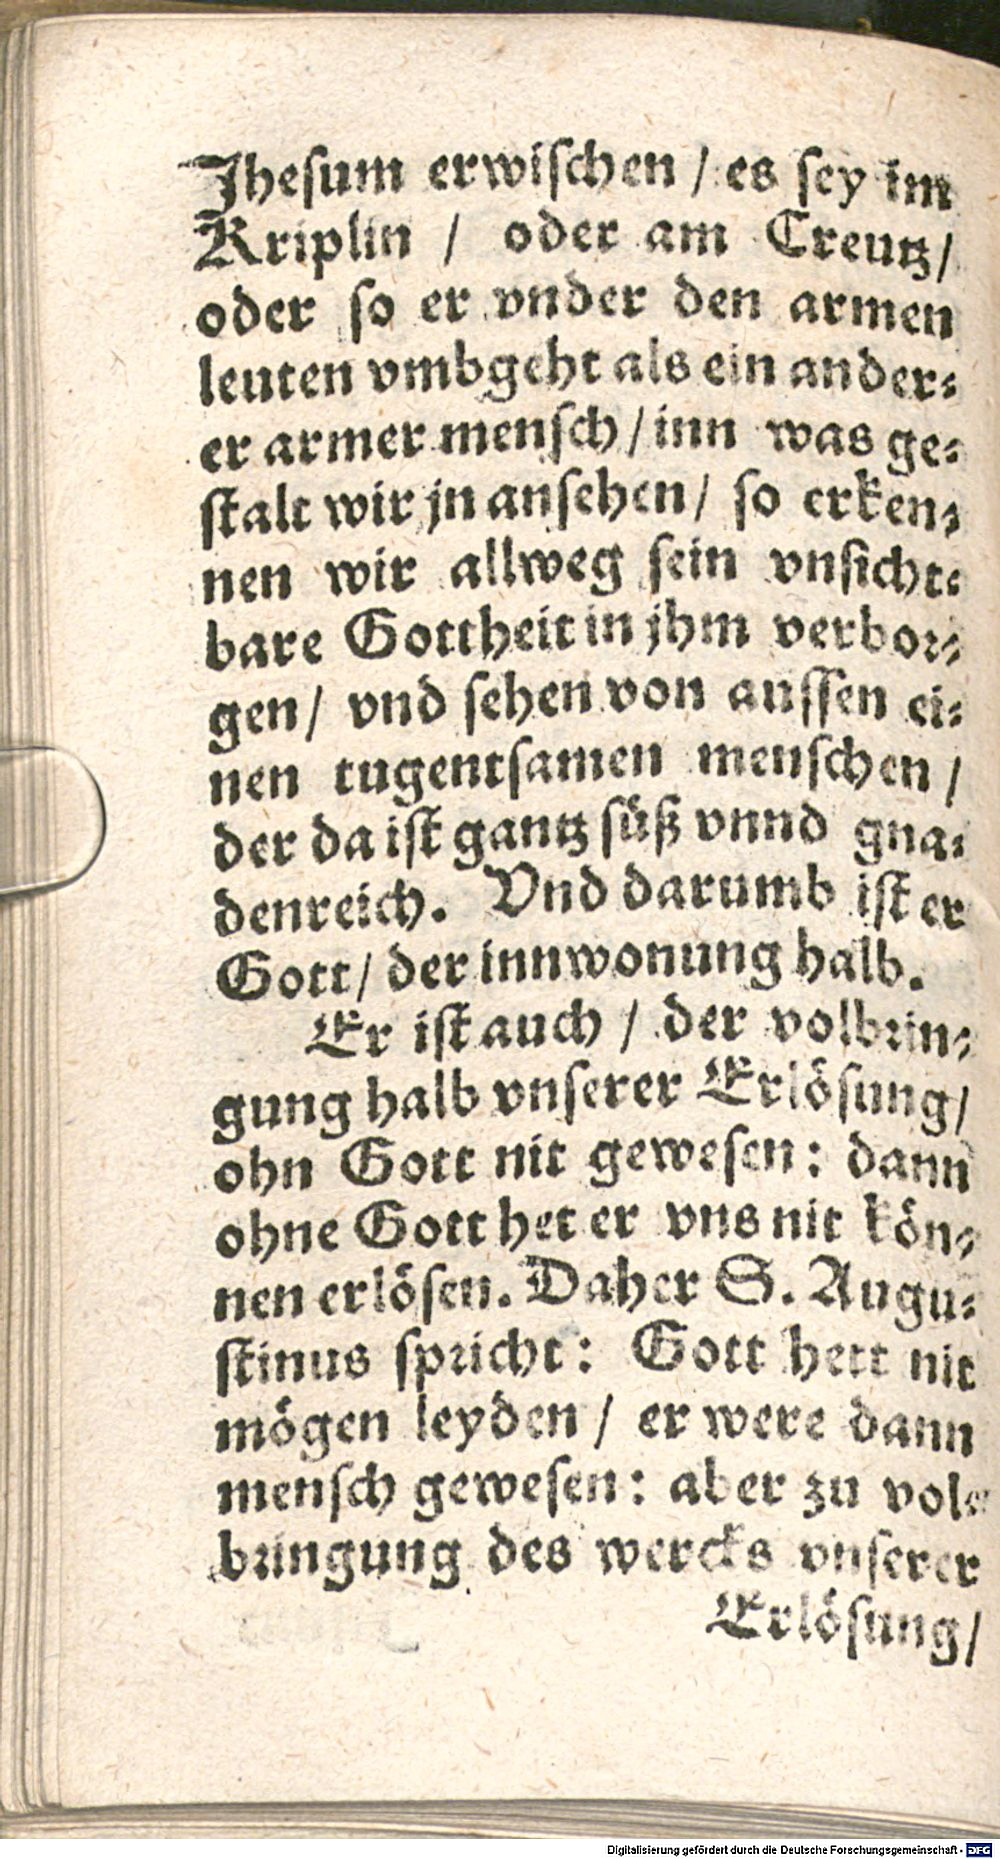 Jhesum erwischen / es sey im
Kriplin / oder am Creutz /
oder so er vnder den armen
leuten vmbgeht als ein ander⸗
er armer mensch / inn was ge⸗
stalt wir jn ansehen / so erken⸗
nen wir allweg sein vnsicht⸗
bare Gottheit in jhm verbor⸗
gen / vnd sehen von aussen ei⸗
nen tugentsamen menschen /
der da ist gantz süß vnnd gna⸗
denreich. Vnd darumb ist er
Gott / der innwonung halb.
Er ist auch / der volbrin⸗
gung halb vnserer Erlösung /
ohn Gott nit gewesen: dann
ohne Gott het er vns nit kön⸗
nen erlösen. Daher S. Augu⸗
stinus spricht: Gott hett nit
mögen leyden / er were dann
mensch gewesen: aber zu vol⸗
bringung des wercks vnserer
Erlösung /
Digitalisierung gefördert durch die Deutsche Forschungsgemeinschaft - DFG